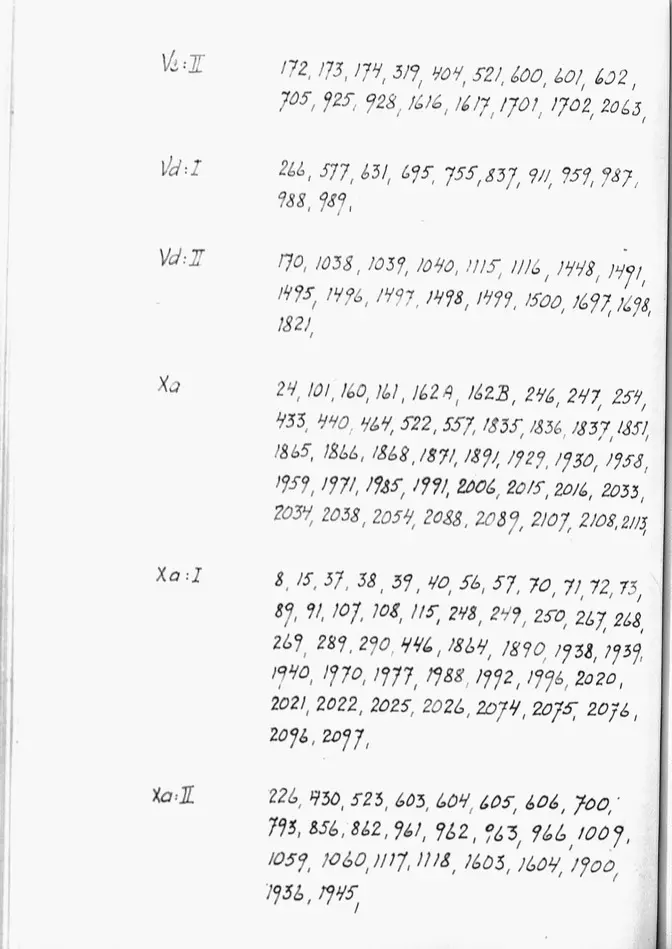 Vd:II 172, 173, 174, 319, 404, 521, 600, 601, 602,
705, 925, 928, 1616, 1617, 1701, 1702, 2063,
Vd:I 266, 577, 631, 695, 755, 837, 911, 959, 987,
988, 989,
Vd:II 170, 1038, 1039, 1040, 1115, 1116, 1448, 1491,
1495, 1496, 1497, 1498, 1499, 1500, 1697, 1698,
1821,
Xa 24, 101, 160, 161, 162A, 162B, 246, 247, 254,
433, 440, 464, 522, 557, 1835, 1836, 1837, 1851,
1865, 1866, 1868, 1871, 1891, 1929, 1930, 1958,
1959, 1971, 1985, 1991, 2006, 2015, 2016, 2033,
2034, 2038, 2054, 2088, 2089, 2107, 2108, 2113,
Xa:I 8, 15, 37, 38, 39, 40, 56, 57, 70, 71, 72, 73,
89, 91, 107, 108, 115, 248, 249, 250, 267, 268,
269, 289, 290, 446, 1864, 1890, 1938, 1939,
1940, 1970, 1977, 1988, 1992, 1996, 2020,
2021, 2022, 2025, 2026, 2074, 2075, 2076,
2096, 2097,
Xa:II 226, 430, 523, 603, 604, 605, 606, 700,
793, 856, 862, 961, 962, 963, 966, 1009,
1059, 1060, 1117, 1118, 1603, 1604, 1900,
1936, 1945,